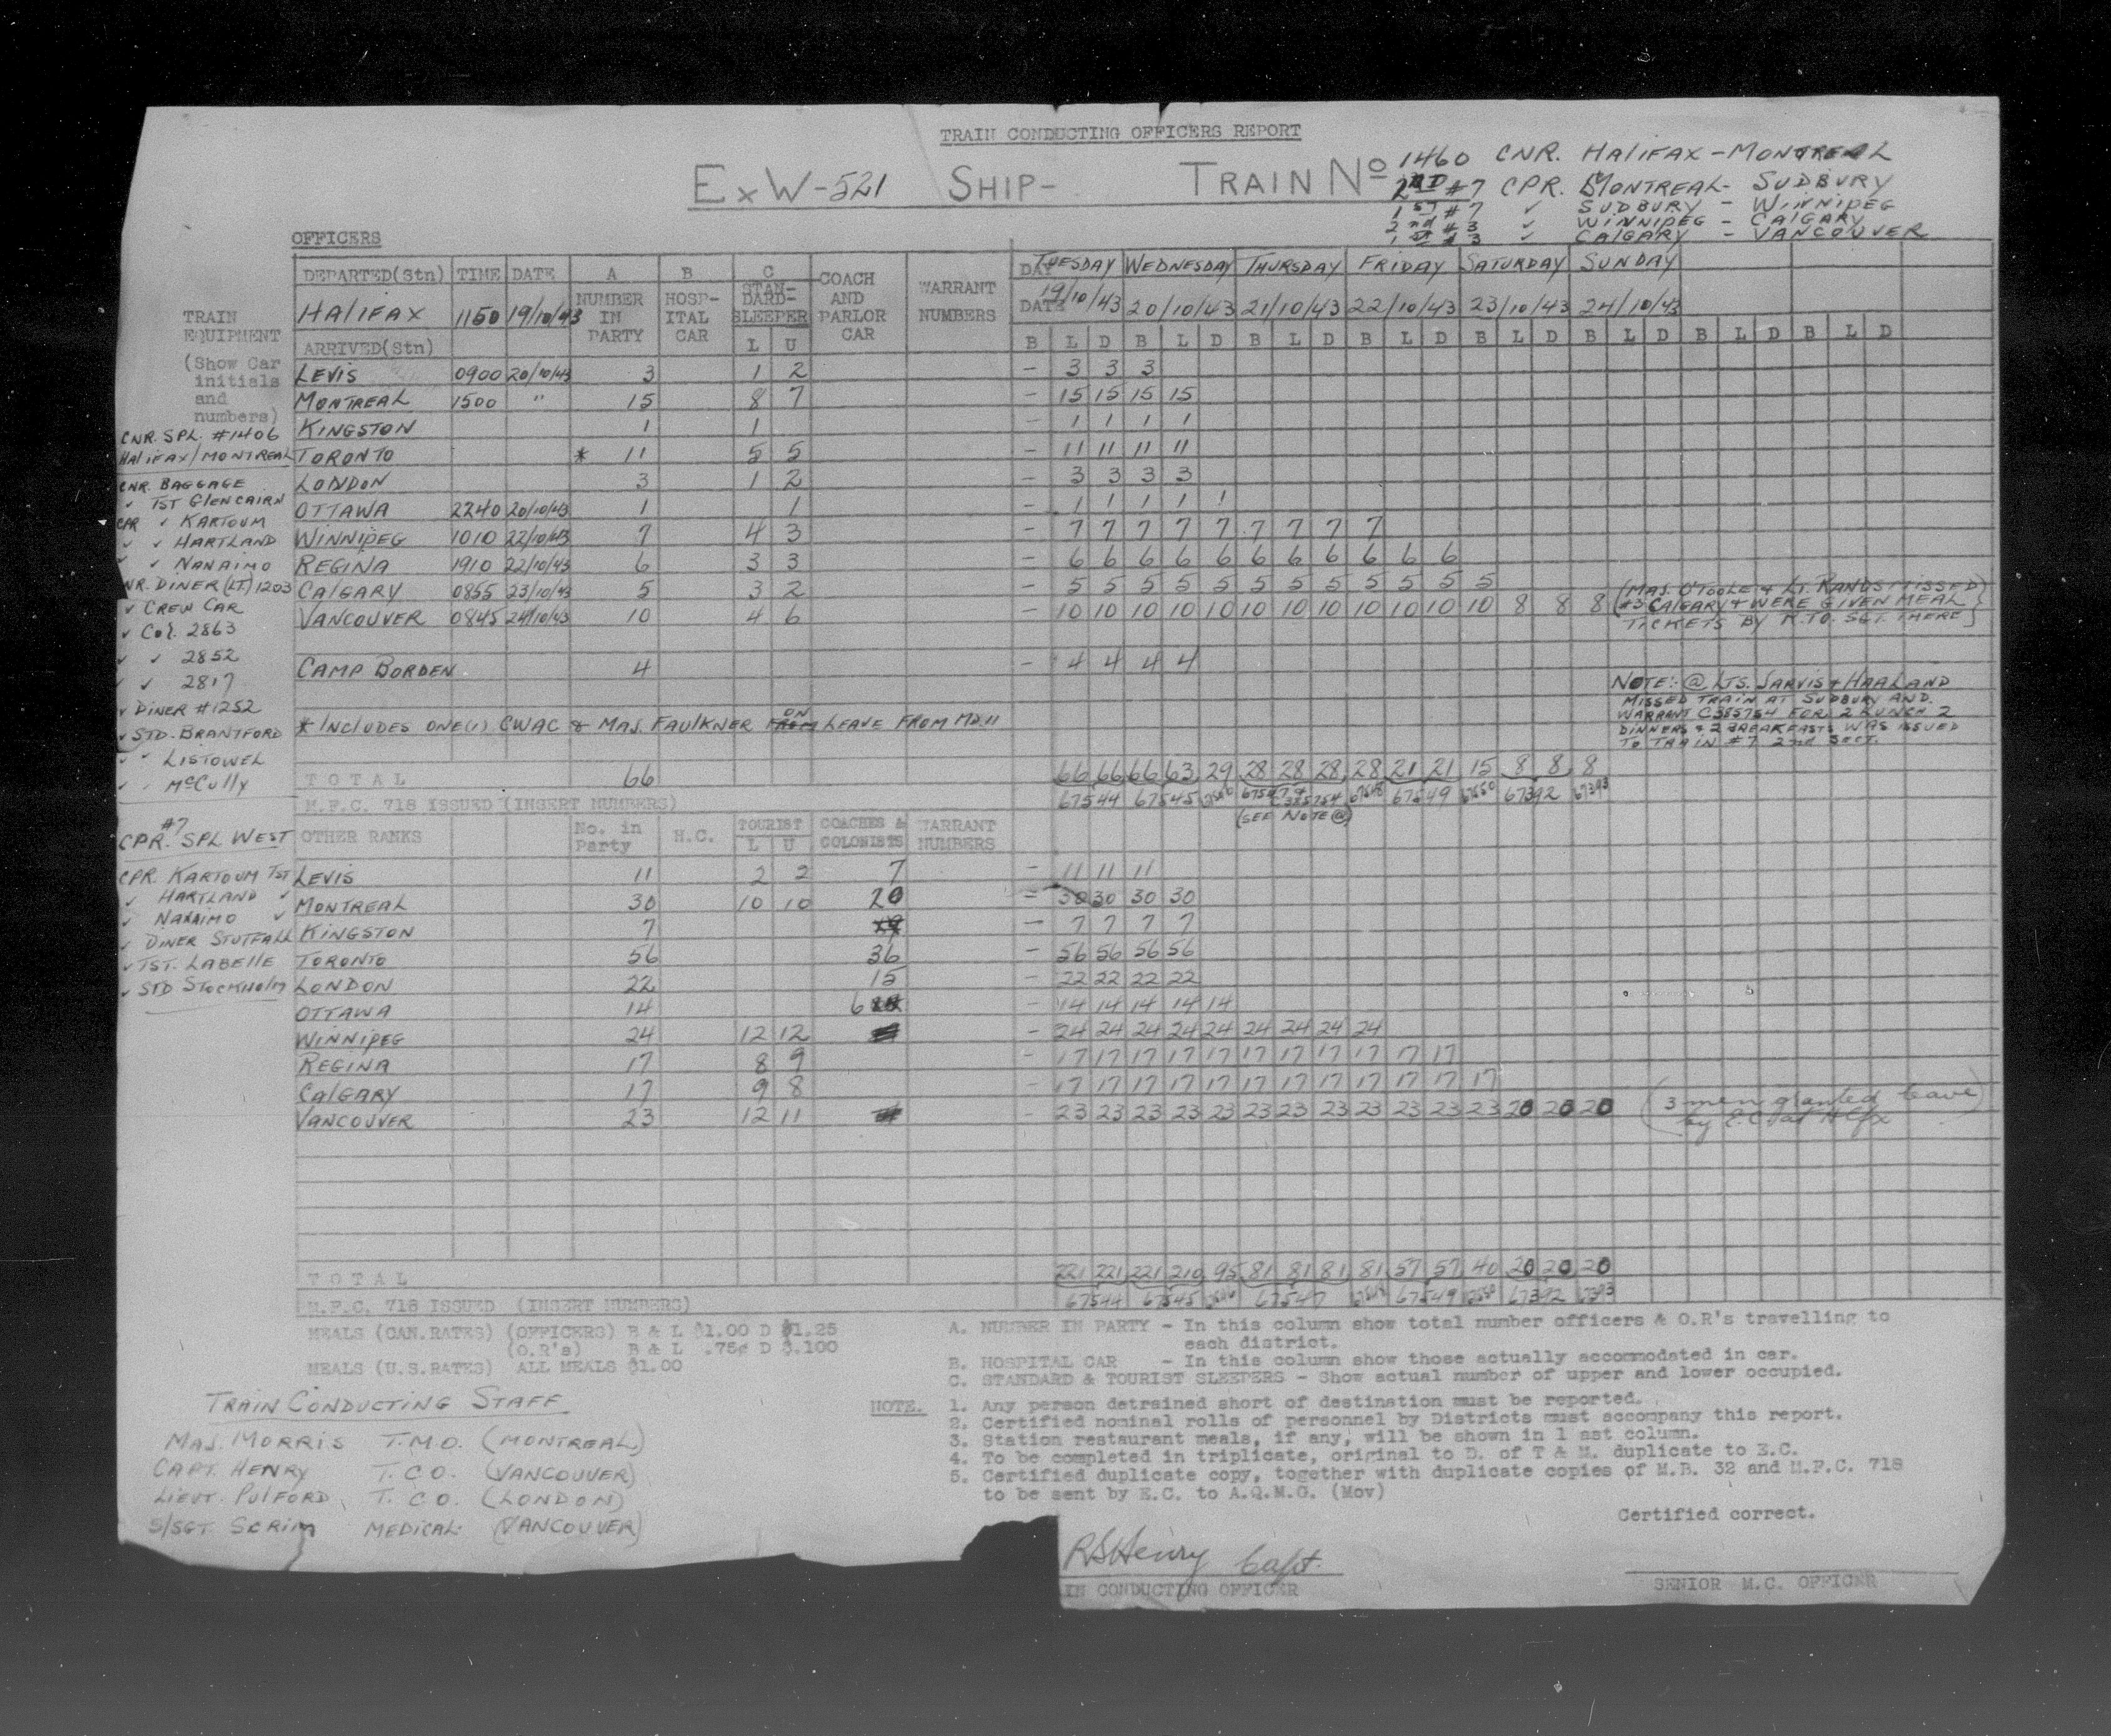 TRAIN CONDUCTING OFFICERS REPORT
ExW-521 SHIP- TRAIN No 1460 CNR. HALIFAX - MONTREAL
2ND #7 CPR. MONTREAL - SUDBURY
1ST #7 ✓ SUDBURY - WINNIPEG
2nd #3 ✓ WINNIPEG - CALGARY
1ST #3 ✓ CALGARY - VANCOUVER
OFFICERS
DEPARTED(Stn) TIME DATE A B C COACH WARRANT DAY TUESDAY WEDNESDAY THURSDAY FRIDAY SATURDAY SUNDAY
HALIFAX 1150 19/10/43 NUMBER IN PARTY HOSP-ITAL CAR STAN-DARD-SLEEPER AND PARLOR CAR NUMBERS DATE 19/10/43 20/10/43 21/10/43 22/10/43 23/10/43 24/10/43
ARRIVED(Stn) L U B L D B L D B L D B L D B L D B L D B L D B L D
LEVIS 0900 20/10/43 3 1 2 - 3 3 3
MONTREAL 1500 " 15 8 7 - 15 15 15 15
KINGSTON 1 1 - 1 1 1 1
TORONTO * 11 5 5 - 11 11 11 11
LONDON 3 1 2 - 3 3 3 3
OTTAWA 2240 20/10/43 1 1 - 1 1 1 1 1
WINNIPEG 1010 22/10/43 7 4 3 - 7 7 7 7 7 7 7 7 7
REGINA 1910 22/10/43 6 3 3 - 6 6 6 6 6 6 6 6 6 6 6
CALGARY 0855 23/10/43 5 3 2 - 5 5 5 5 5 5 5 5 5 5 5 5
VANCOUVER 0845 24/10/43 10 4 6 - 10 10 10 10 10 10 10 10 10 10 10 10 8 8 8
(MAJ. O'TOOLE & LT. RANDS MISSED
#3 CALGARY & WERE GIVEN MEAL
TICKETS BY R.T.O. SGT. THERE)
CAMP BORDEN 4 - 4 4 4 4
NOTE:- @ LTS. JARVIS & HAALAND
MISSED TRAIN AT SUDBURY AND
WARRANT C385754 FOR 2 LUNCH 2
DINNERS & 2 BREAKFASTS WAS ISSUED
TO TRAIN #7 2nd SECT.
* INCLUDES ONE(1) CWAC & MAJ. FAULKNER FROM ON LEAVE FROM MD.11
TOTAL 66 66 66 66 63 29 28 28 28 28 21 21 15 8 8 8
M.F.C. 718 ISSUED (INSERT NUMBERS) 67544 67545 67546 67547 & C385754 67548 67549 67550 67392 67393
(SEE NOTE @)
TRAIN
EQUIPMENT
(Show Car
initials
and
numbers)
CNR. SPL. #1406
HALIFAX/MONTREAL
CNR. BAGGAGE
✓ TST GLENCAIRN
CPR ✓ KARTOUM
✓ ✓ HARTLAND
✓ ✓ NANAIMO
NR. DINER (LT.) 1203
✓ CREW CAR
✓ Col. 2863
✓ ✓ 2852
✓ ✓ 2817
✓ DINER #1252
✓ STD. BRANTFORD
✓ ✓ LISTOWEL
✓ ✓ McCully
#7
CPR. SPL WEST
CPR. KARTOUM TST
✓ HARTLAND ✓
✓ NANAIMO ✓
✓ DINER STUTFALL
✓ TST. LABELLE
✓ STD STOCKHOLM
OTHER RANKS No. in Party H.C. TOURIST L U COACHES & COLONISTS WARRANT NUMBERS
LEVIS 11 2 2 7 - 11 11 11
MONTREAL 30 10 10 20 - 30 30 30 30
KINGSTON 7 - 7 7 7 7
TORONTO 56 36 - 56 56 56 56
LONDON 22 15 - 22 22 22 22
OTTAWA 14 6 - 14 14 14 14 14
WINNIPEG 24 12 12 - 24 24 24 24 24 24 24 24 24
REGINA 17 8 9 - 17 17 17 17 17 17 17 17 17 17 17
CALGARY 17 9 8 - 17 17 17 17 17 17 17 17 17 17 17 17
VANCOUVER 23 12 11 - 23 23 23 23 23 23 23 23 23 23 23 23 20 20 20
(3 men granted leave
by E.C. at Hlfx)
TOTAL 221 221 221 210 95 81 81 81 81 57 57 40 20 20 20
M.F.C. 718 ISSUED (INSERT NUMBERS) 67544 67545 67546 67547 67548 67549 67550 67392 67393
MEALS (CAN.RATES) (OFFICERS) B & L $1.00 D $1.25
(O.R's) B & L .75¢ D $.100
MEALS (U.S.RATES) ALL MEALS $1.00
A. NUMBER IN PARTY - In this column show total number officers & O.R's travelling to
each district.
B. HOSPITAL CAR - In this column show those actually accommodated in car.
C. STANDARD & TOURIST SLEEPERS - Show actual number of upper and lower occupied.
NOTE. 1. Any person detrained short of destination must be reported.
2. Certified nominal rolls of personnel by Districts must accompany this report.
3. Station restaurant meals, if any, will be shown in l ast column.
4. To be completed in triplicate, original to D. of T & M. duplicate to E.C.
5. Certified duplicate copy, together with duplicate copies of M.B. 32 and M.F.C. 718
to be sent by E.C. to A.Q.M.G. (Mov)
TRAIN CONDUCTING STAFF
MAJ. MORRIS T.M.O. (MONTREAL)
CAPT. HENRY T.C.O. (VANCOUVER)
LIEUT. PULFORD, T.C.O. (LONDON)
S/SGT. SCRIM MEDICAL: (VANCOUVER)
Certified correct.
RSHenry Capt.
IN CONDUCTING OFFICER
SENIOR M.C. OFFICER